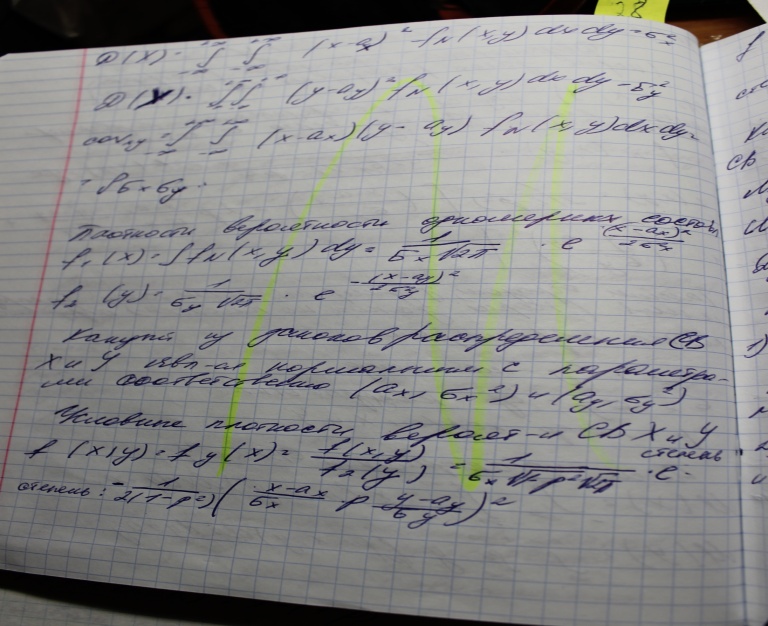 28
D(X) = ∫∫ (x-ax)² fN(x,y) dx dy = σx²
D(Y) = ∫∫ (y-ay)² fN(x,y) dx dy = σy²
covxy = ∫∫ (x-ax)(y-ay) fN(x,y) dx dy =
= ρσxσy.
Плотности вероятности одномерных составл
f₁(x) = ∫ fN(x,y) dy = 1/(σx√2π) · e^(x-ax)²/2σx²
f₂(y) = 1/(σy√2π) · e^-(x-ay)²/2σy²
Каждый из законов распределения СВ
X и Y явл-ся нормальным с параметра-
ми соответственно (ax, σx²) и (ay, σy²)
Условные плотности вероят-и СВ X и Y
f(x,y) = fy(x) = f(x,y)/f₂(y) = 1/(σx√1-ρ²√2π) · e^степень
степень: -1/2(1-ρ²) ((x-ax)/σx - ρ (y-ay)/σy)²
1)